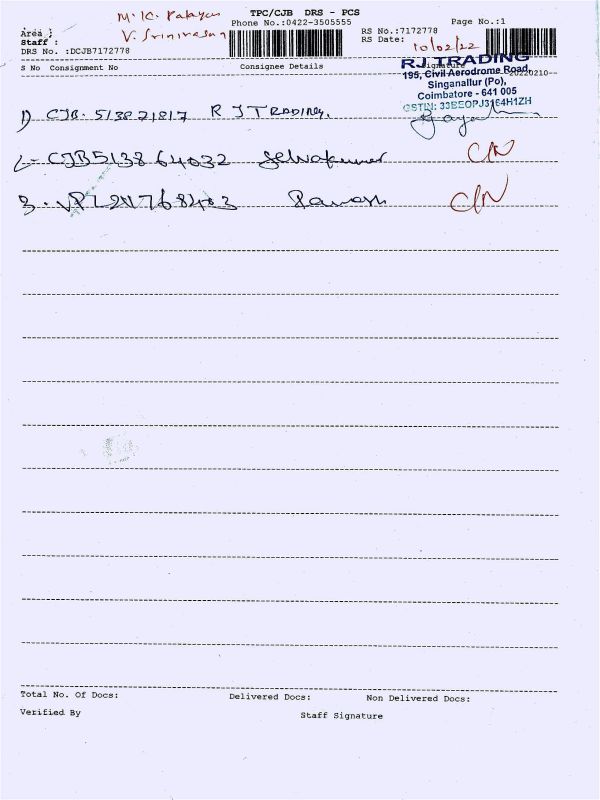 TPC/CJB DRS - PCS
Phone No.:0422-3505555
Page No.:1
Area :
M. K. Palayam
Staff :
V. Srinivasan
DRS No. :DCJB7172778
RS No.:7172778
RS Date: 10/02/22
20220210
S No Consignment No
Consignee Details
Signature
RJ TRADING
195, Civil Aerodrome Road,
Singanallur (Po),
Coimbatore - 641 005
GSTIN: 33BEOPJ3164H1ZH
1) CJB. 513871817 R J TRADING.
2- CJB513864032 Selvakumar C/N
3. VPL217768403 C/N
Total No. Of Docs:
Delivered Docs:
Non Delivered Docs:
Verified By
Staff Signature